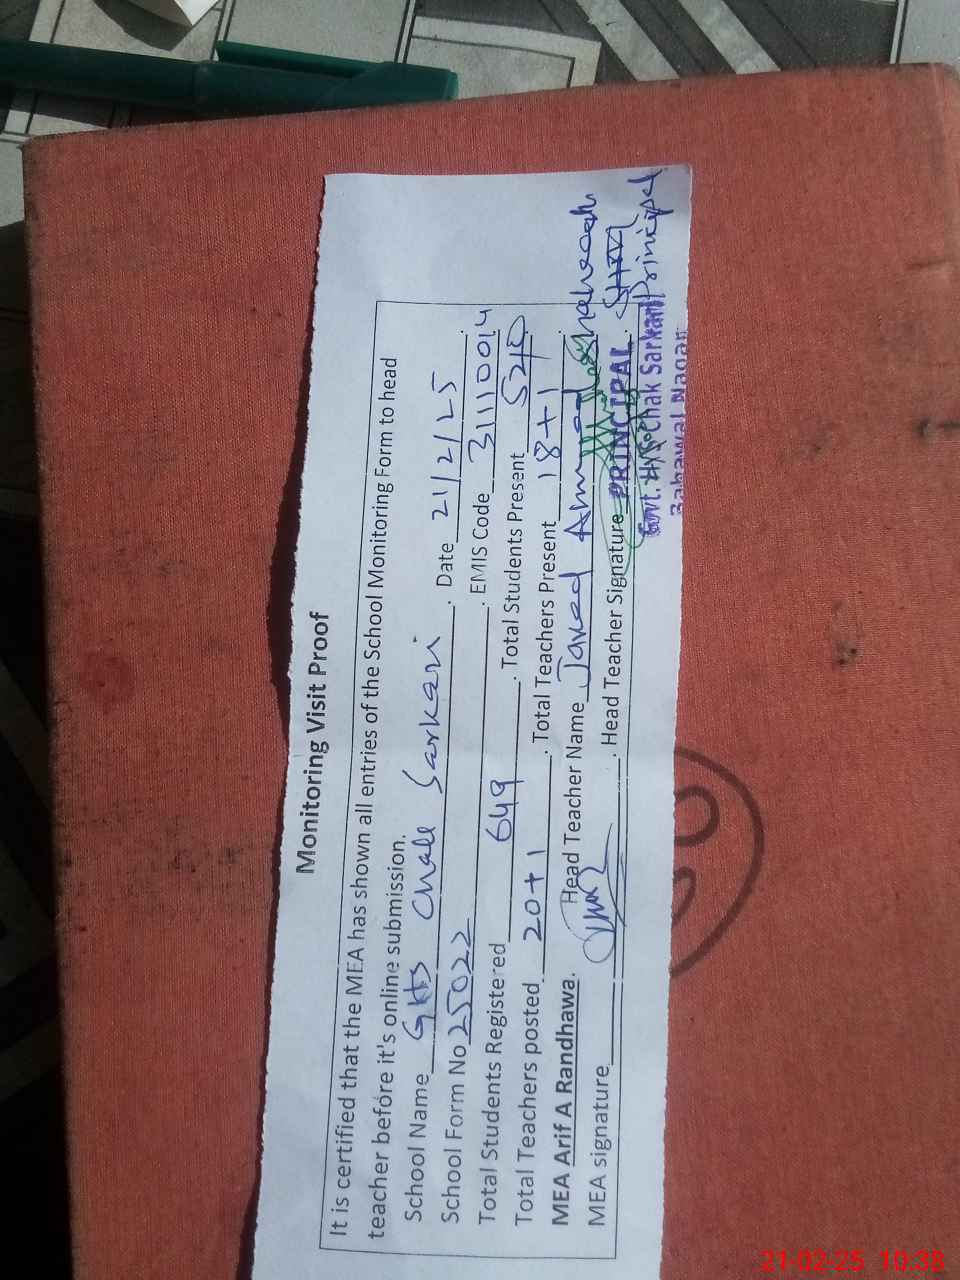 Monitoring Visit Proof
It is certified that the MEA has shown all entries of the School Monitoring Form to head
teacher before it's online submission.
School Name GHS Chak Sarkari . Date 21/2/25
School Form No 25022 . EMIS Code 31110014
Total Students Registered 649 . Total Students Present 520
Total Teachers posted 20+1 . Total Teachers Present 18+1
MEA Arif A Randhawa. Head Teacher Name Javed Ahmad
MEA signature . Head Teacher Signature
PRINCIPAL
Govt. H/S Chak Sarkari Principal
Bahawal Nagar
21-02-25 10:38